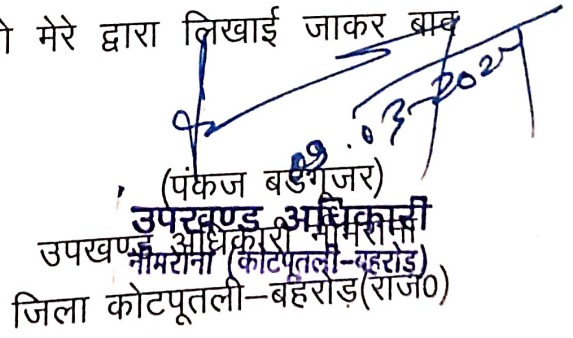 मेरे द्वारा लिखाई जाकर बाद
09.03-2024
(पंकज बडगूजर)
उपखण्ड अधिकारी
उपखण्ड अधिकारी नीमराना
नीमराना (कोटपूतली-बहरोड़)
जिला कोटपूतली-बहरोड़(राज0)